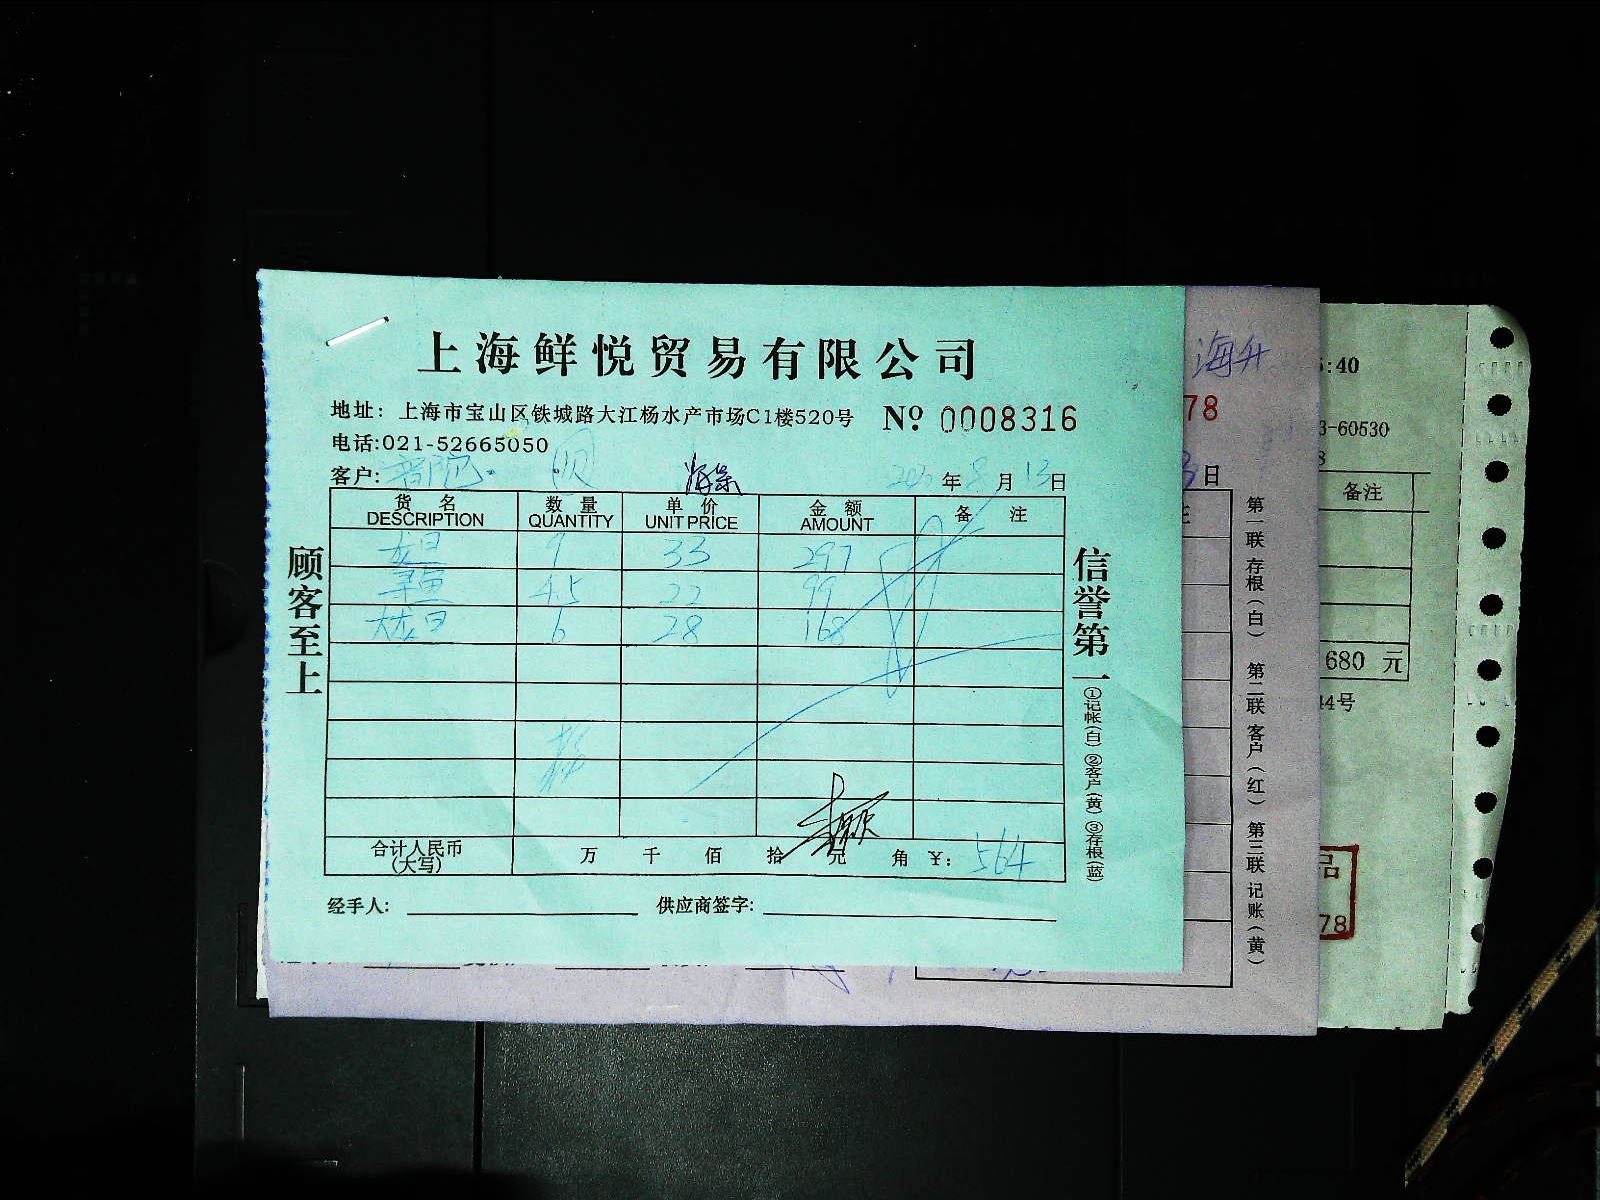 上海鲜悦贸易有限公司
地址：上海市宝山区铁城路大江杨水产市场C1楼520号 Nº 0008316
电话:021-52665050
客户: 普陀 年8月13日
货名 DESCRIPTION 数量 QUANTITY 单价 UNIT PRICE 金额 AMOUNT 备注
9 33 297
4.5 22 99
6 28 168
合计人民币(大写) 万 千 佰 拾 元 角 ¥: 564
经手人: 供应商签字:
顾客至上
信誉第一
①记帐(白)②客户(黄)③存根(蓝)
海升
78
日
第一联 存根(白) 第二联 客户(红) 第三联 记账(黄)
:40
3-60530
8
备注
680 元
44号
品
78